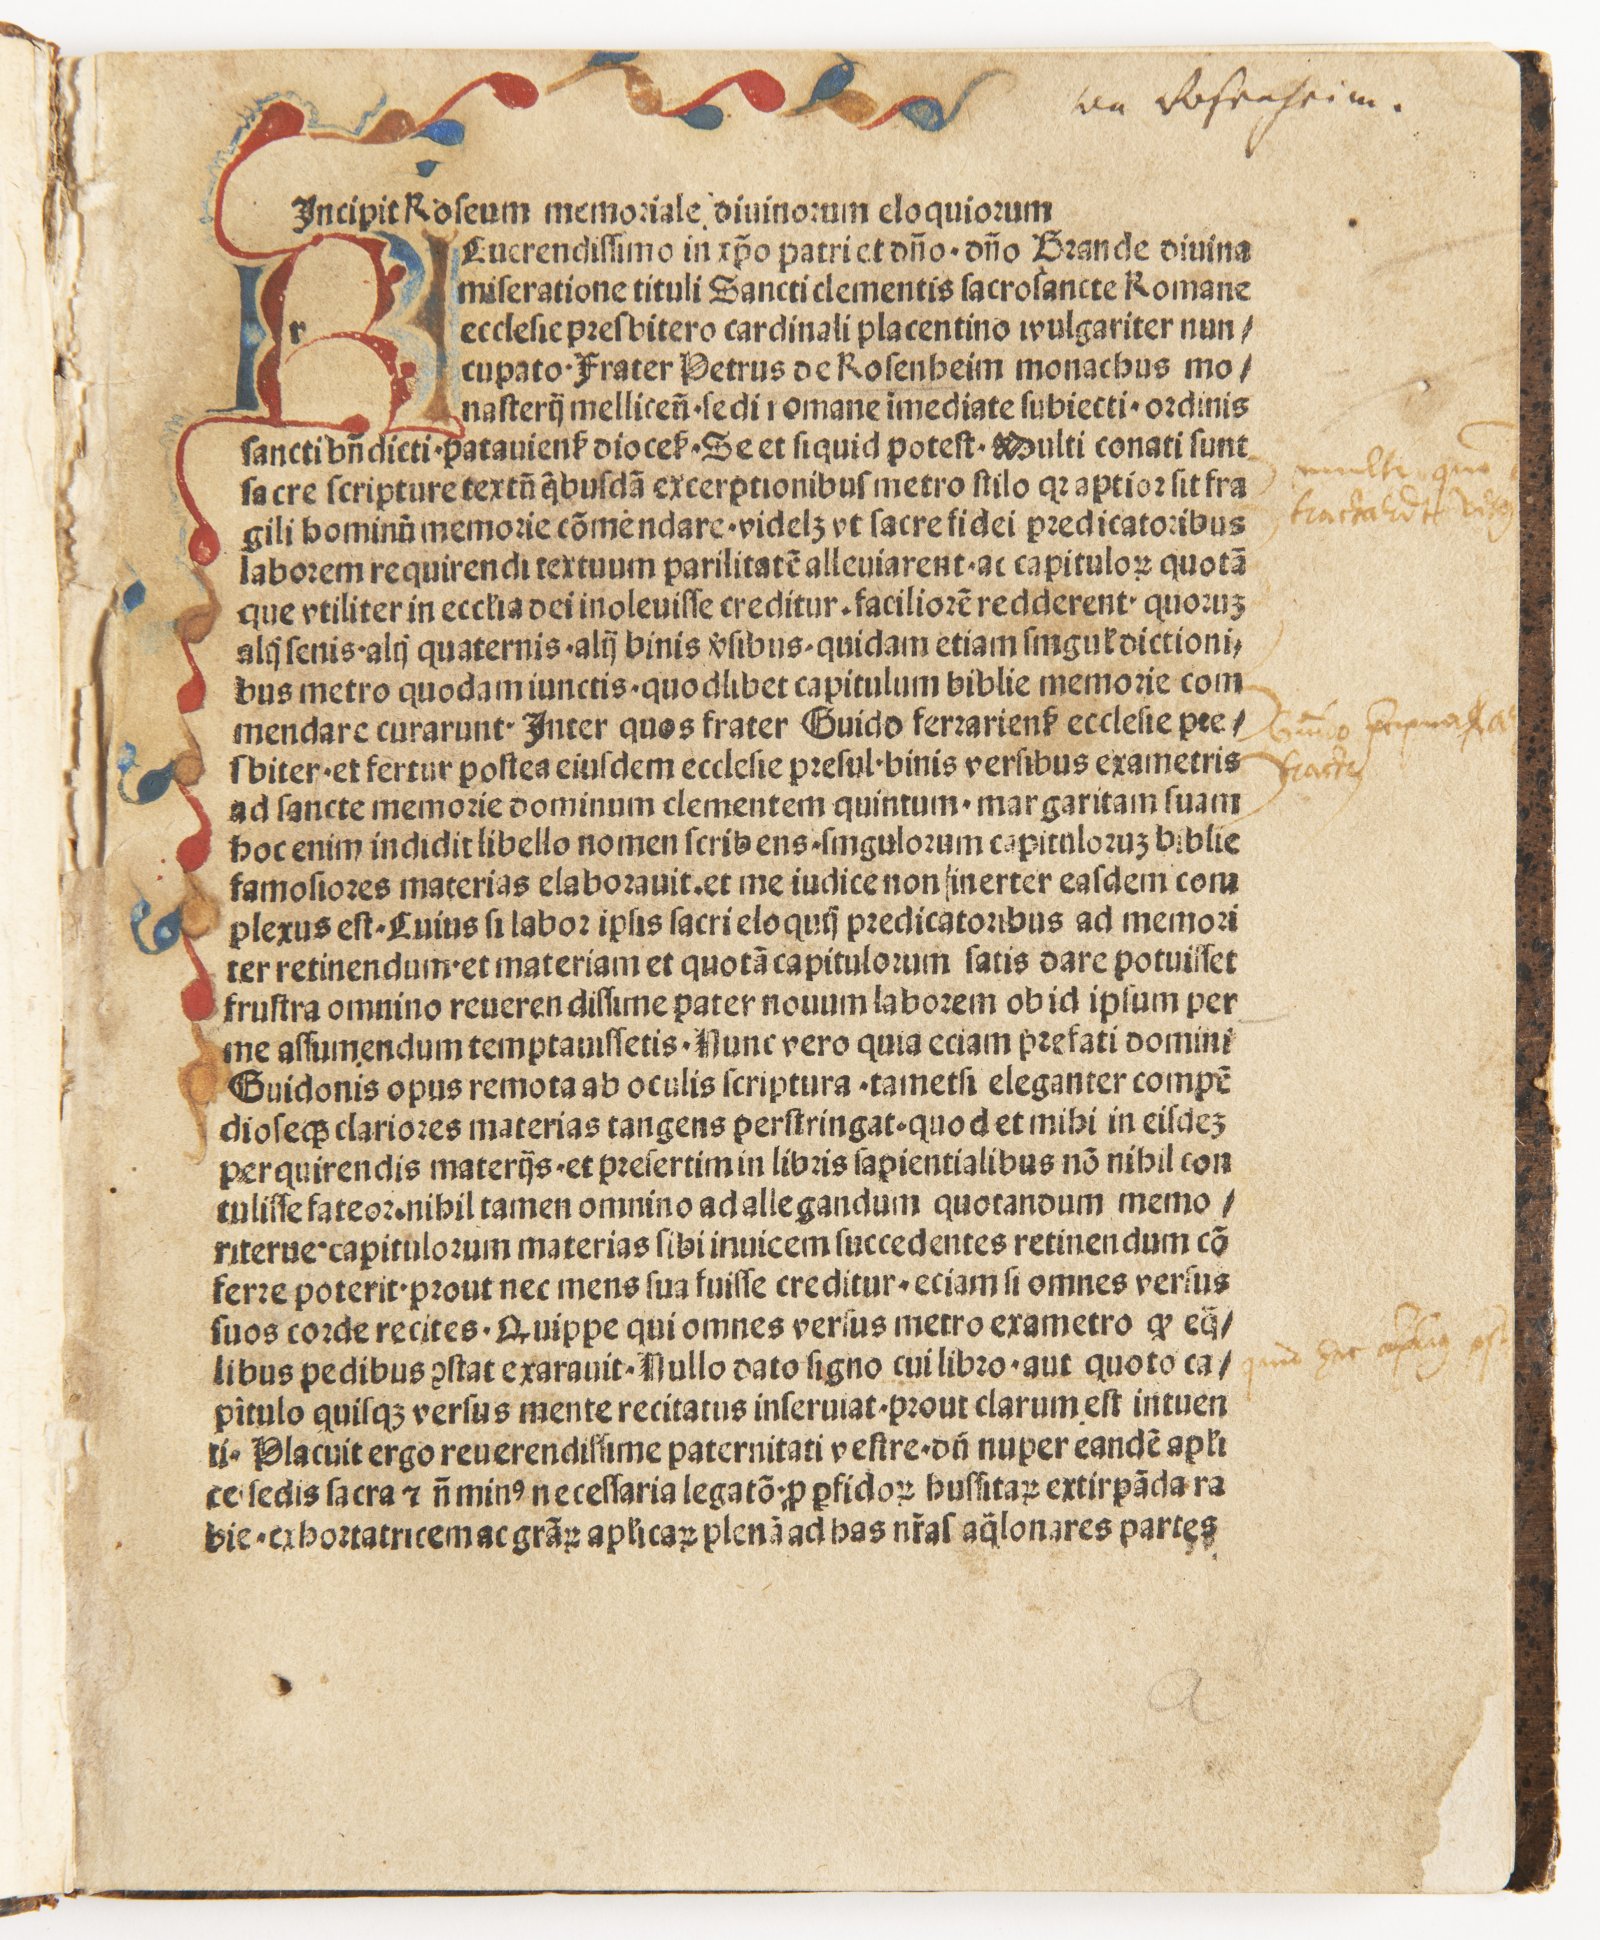 von Rosenheim.
Incipit Roseum memoriale diuinorum eloquiorum
Euerendissimo in xp̄o patri et dn̄o · dn̄o Brande diuina
miseratione tituli Sancti clementis sacrosancte Romane
ecclesie presbitero cardinali placentino wulgariter nun/
r
cupato · Frater Petrus de Rosenheim monachus mo/
nasterij mellicen̄ · sedi romane īmediate subiecti · ordinis
sancti bn̄dicti · patauienẜ dioceẜ · Se et siquid potest · Multi conati sunt
sacre scripture textū q̄busdā excerptionibus metro stilo qꝛ aptior sit fra
gili hominū memorie cōmendare · videlꝫ vt sacre fidei predicatoribus
laborem requirendi textuum parilitatē alleuiarent · ac capituloꝝ quotā
que vtiliter in eccłia dei inoleuisse creditur · faciliorē redderent · quoruꝫ
alij senis · alij quaternis · alij binis v̄sibus · quidam etiam singuł dictioni/
bus metro quodam iunctis · quodlibet capitulum biblie memorie com
mendare curarunt · Inter quos frater Guido ferrarienẜ ecclesie pre/
sbiter · et fertur postea eiusdem ecclesie presul · binis versibus exametris
ad sancte memorie dominum clementem quintum · margaritam suam
hoc enim indidit libello nomen scribens · singulorum capituloruꝫ biblie
famosiores materias elaborauit · et me iudice non inerter easdem com
plexus est · Cuius si labor ipsis sacri eloquij predicatoribus ad memori
ter retinendum · et materiam et quotā capitulorum satis dare potuisset
frustra omnino reuerendissime pater nouum laborem ob id ipsum per
me assumendum temptauissetis · Nunc vero quia eciam prefati domini
Guidonis opus remota ab oculis scriptura · tametsi eleganter compē
dioseqꝫ clariores materias tangens perstringat · quod et mihi in eisdeꝫ
perquirendis materijs · et presertim in libris sapientialibus nō nihil con
tulisse fateor · nihil tamen omnino ad allegandum quotandum memo/
riterue · capitulorum materias sibi inuicem succedentes retinendum cō
ferre poterit · prout nec mens sua fuisse creditur · eciam si omnes versus
suos corde recites · Quippe qui omnes versus metro exametro ꝙ eq̄/
libus pedibus ꝯstat exarauit · Nullo dato signo cui libro · aut quoto ca/
pitulo quisqꝫ versus mente recitatus inseruiat · prout clarum est intuen
ti · Placuit ergo reuerendissime paternitati vestre · dn̄ nuper eandē apłi
ce sedis sacra ⁊ n̄ minꝰ necessaria legatō · ꝓ ꝑfidoꝝ hussitaꝝ extirpāda ra
bie · exhortatricem ac grāꝝ apłicaꝝ plenā ad has nr̄as aq̄lonares partes
a